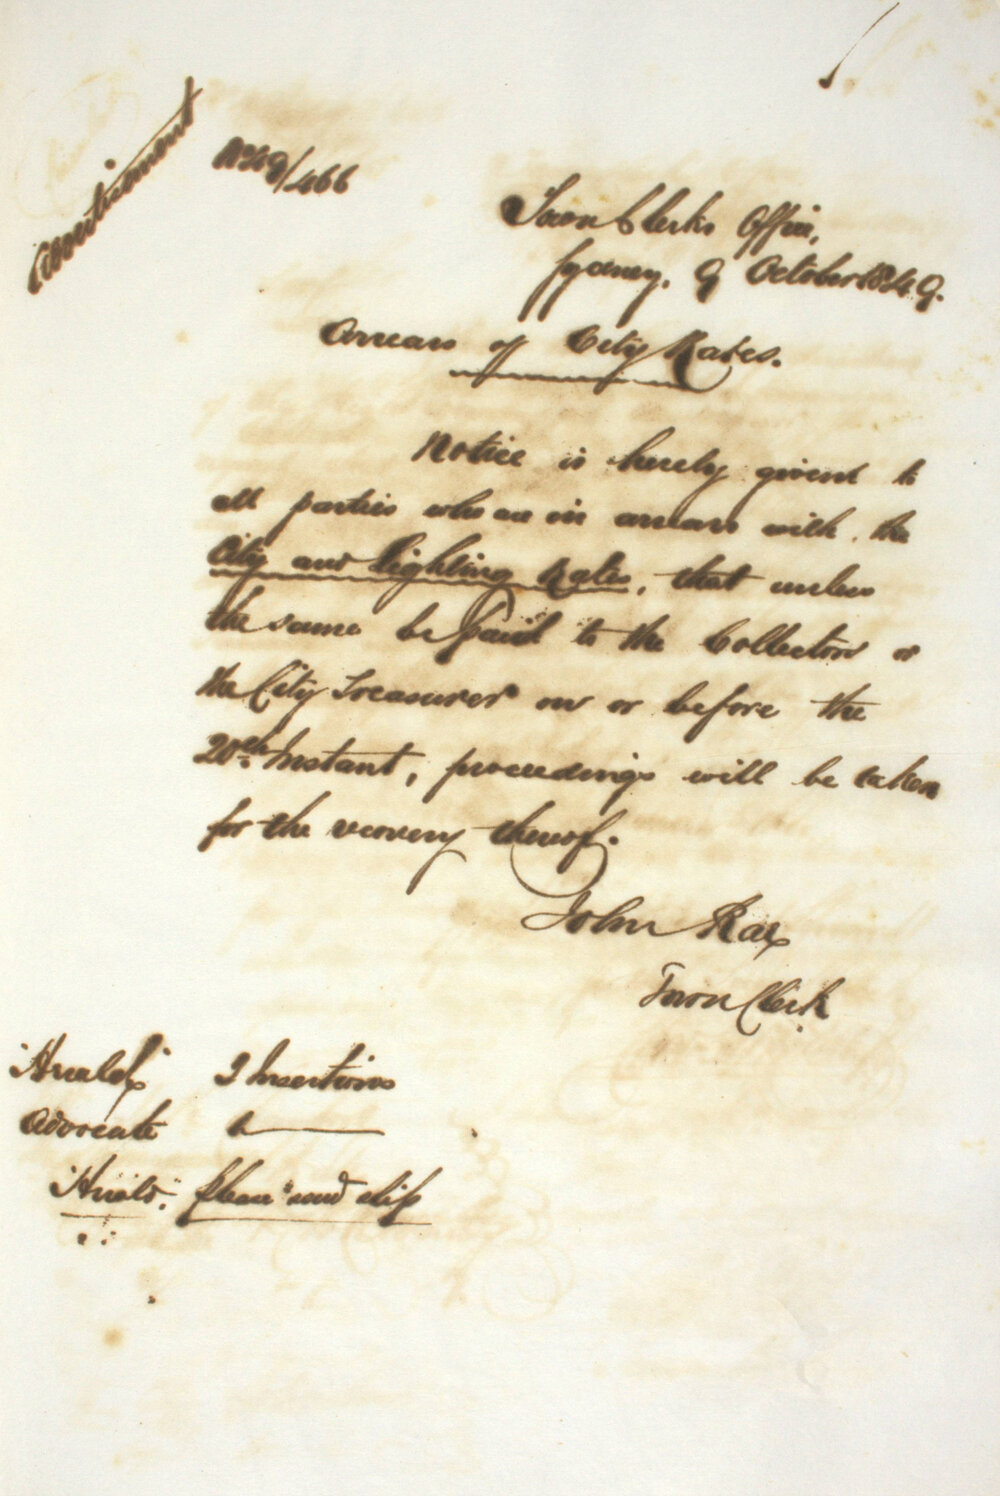 Advertisement
No 49/466
Town Clerks Office,
Sydney, 9 October 1849.
Arrears of City Rates.
Notice is hereby given to
all parties who are in arrears with the
City and Lighting Rates, that unless
the same be paid to the Collectors or
the City Treasurer on or before the
20th Instant, proceedings will be taken
for the recovery thereof.
John Rae
Town Clerk
Herald 2 Insertions
Advocate
Herald. please send slip